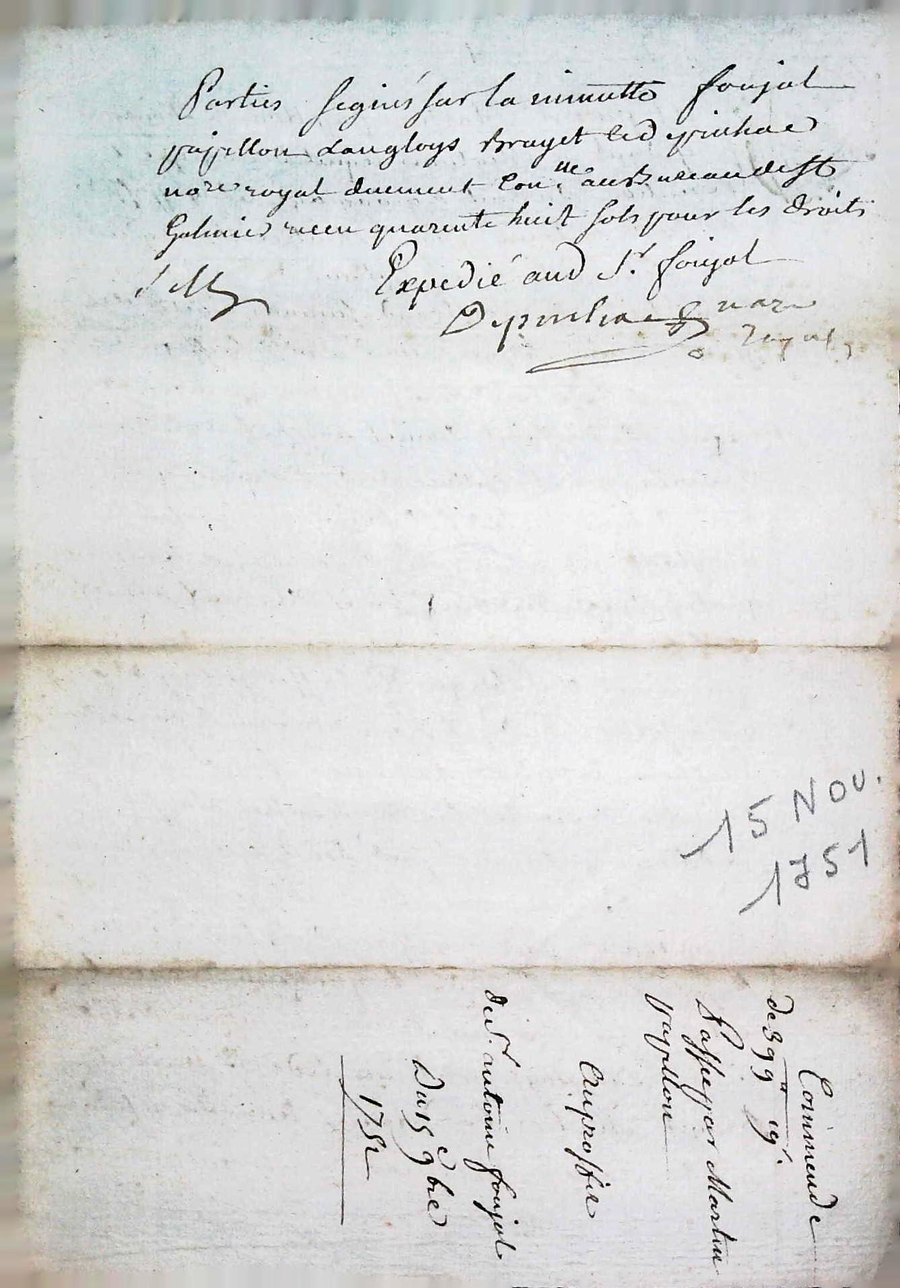 Parties signés sur la minutte foujol
papillon Langloys Bruget led
no.re royal duement Con.lle au Bureau de St
Galmier receu quarente huit sols pour les droits
Expedié aud S.r foujol
Depinhac nore
royal
15 NOV.
1751
Commende
de 399 lt 19 s.
Passée par Martin
papillon
Au proffit
du S.r antoine foujol
Du 15e 9bre